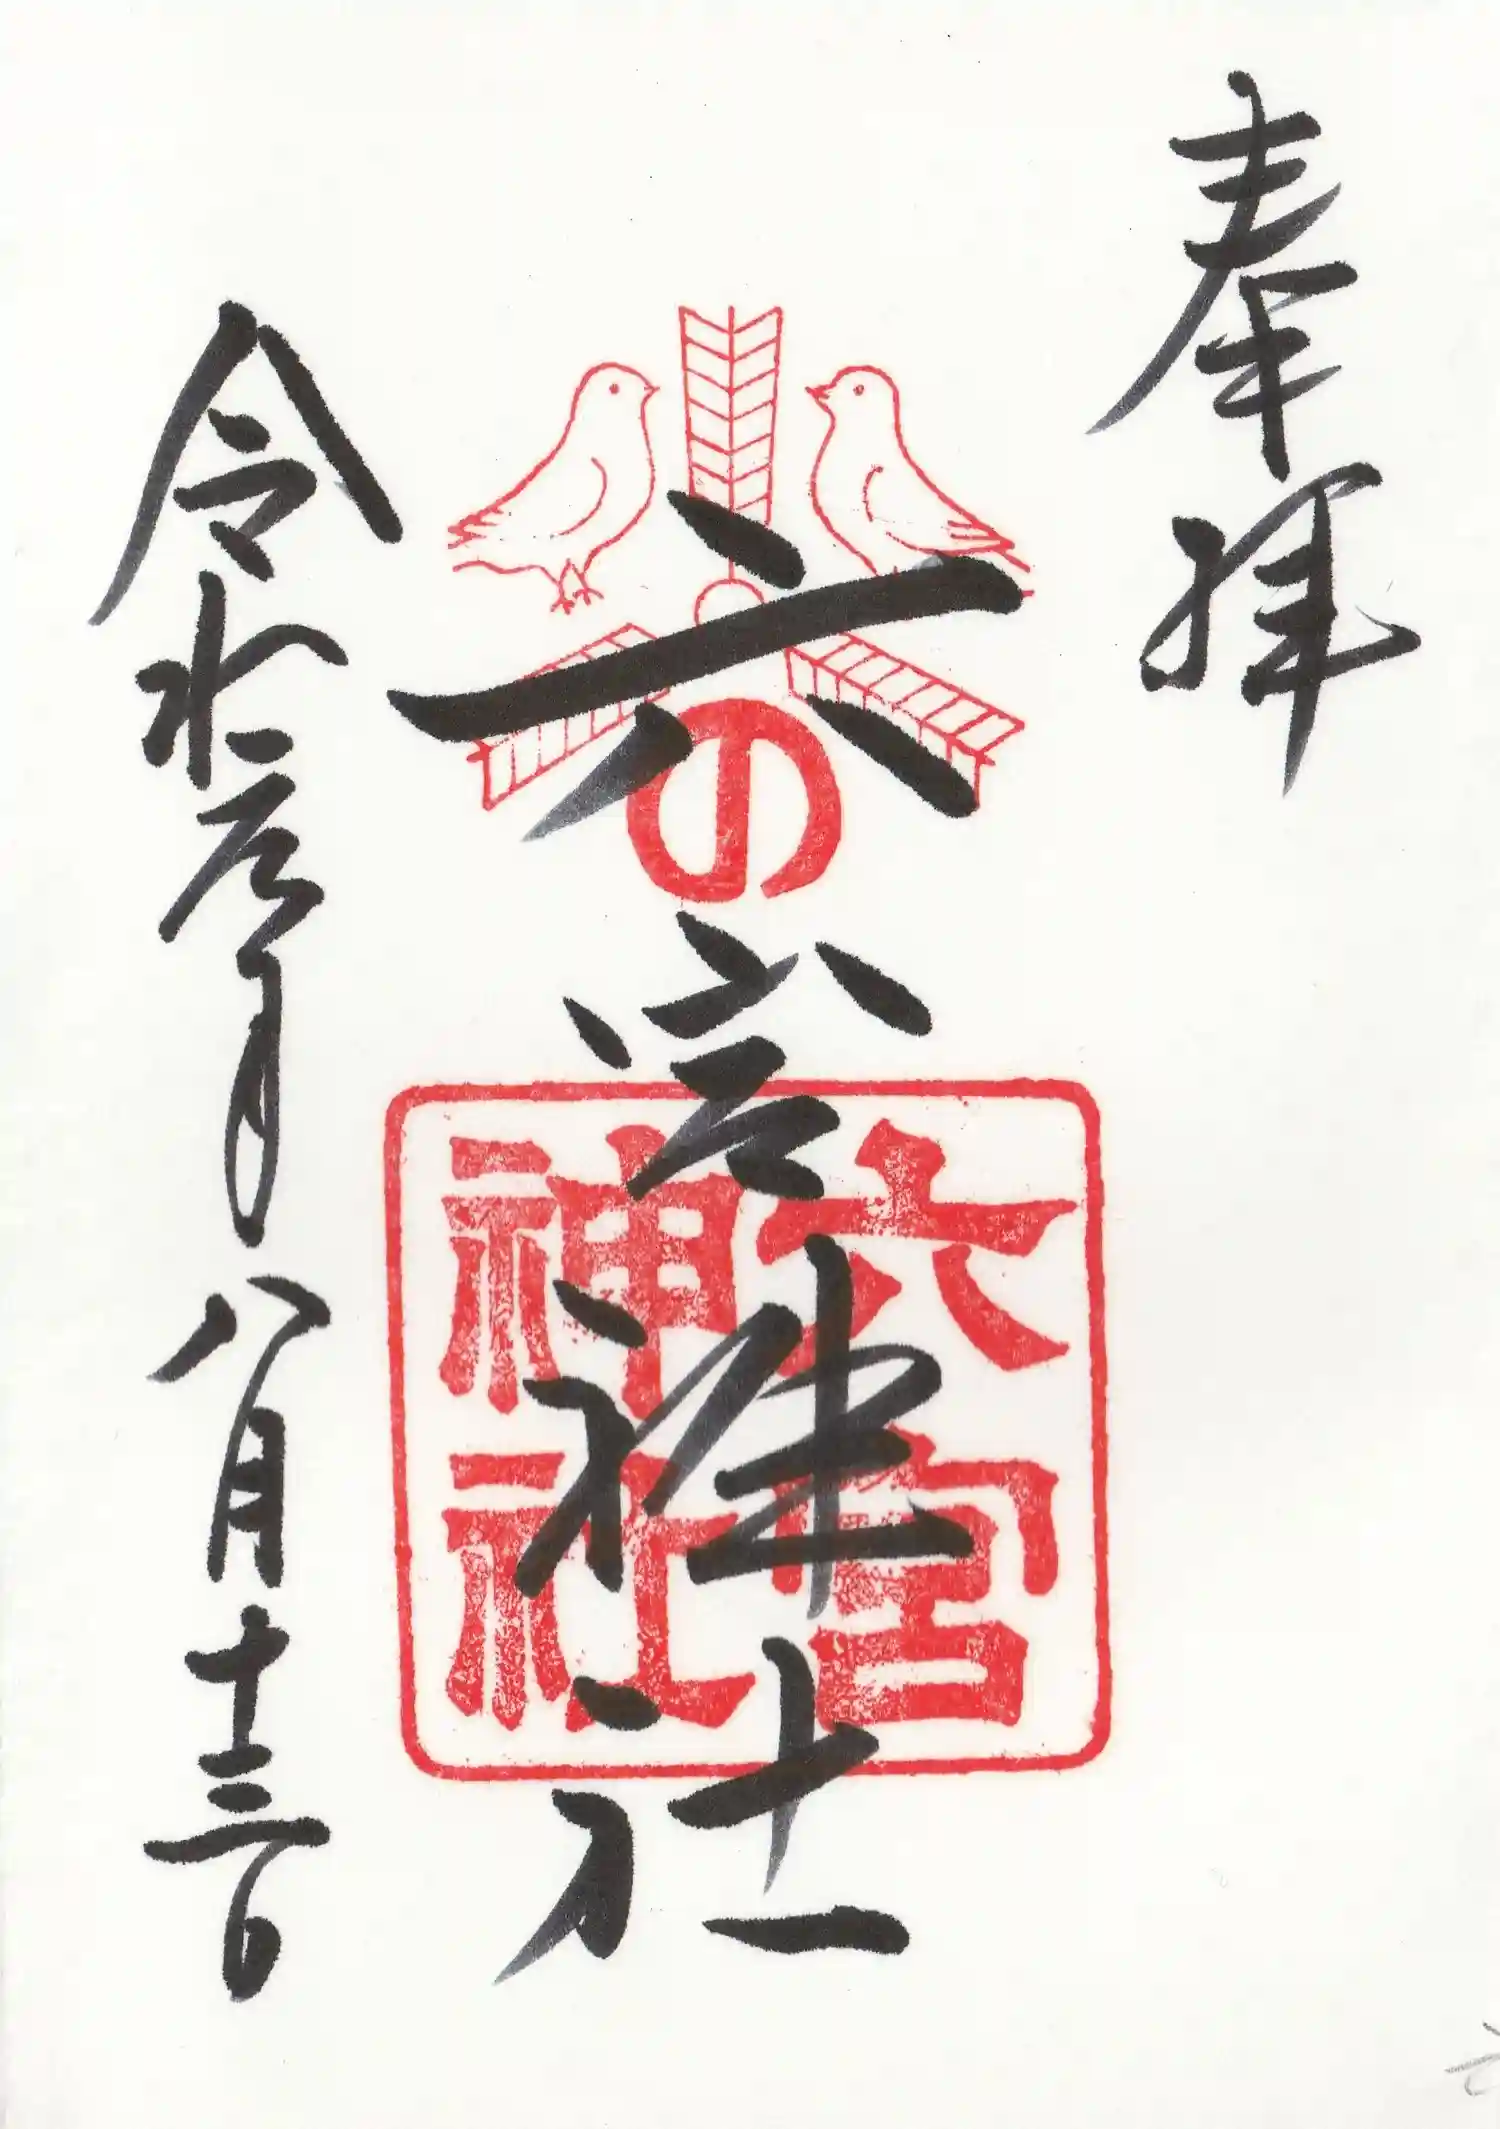 奉拝
六宮神社
の
六宮
神社
令和元年八月十三日